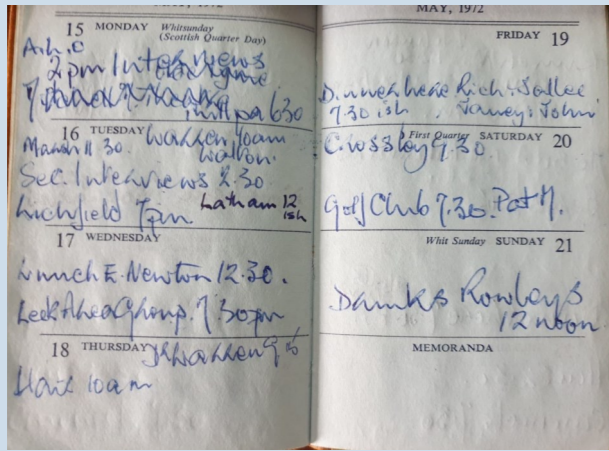 15 MONDAY Whitsunday
(Scottish Quarter Day)
2pm Interviews
630
16 TUESDAY Warren 10am
March 11 30. Walton.
Sec. Interviews 2.30
Lichfield 7pm Latham 12
ish
17 WEDNESDAY
Lunch E. Newton 12.30.
Leek Area Group. 7 30pm
18 THURSDAY Warren 9
Hair 10am
MAY, 1972
FRIDAY 19
Dinner here Rich &
7.30 ish, Janey & John
First Quarter SATURDAY 20
Crossley 9.30.
Golf Club 7.30. Pat M.
Whit Sunday SUNDAY 21
Drinks Rowleys
12 noon
MEMORANDA